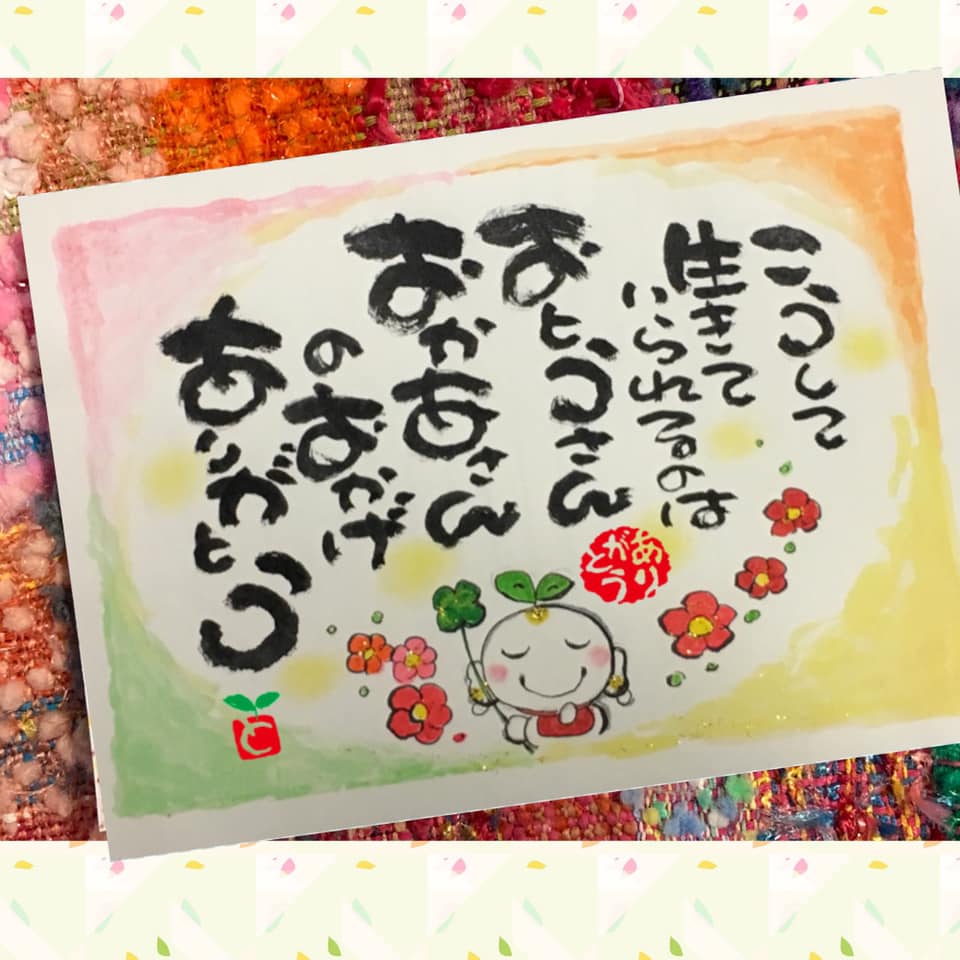 こうして
生きて
いられてるのは
おとうさん
おかあさん
のおかげ
ありがとう
ありがとう
と